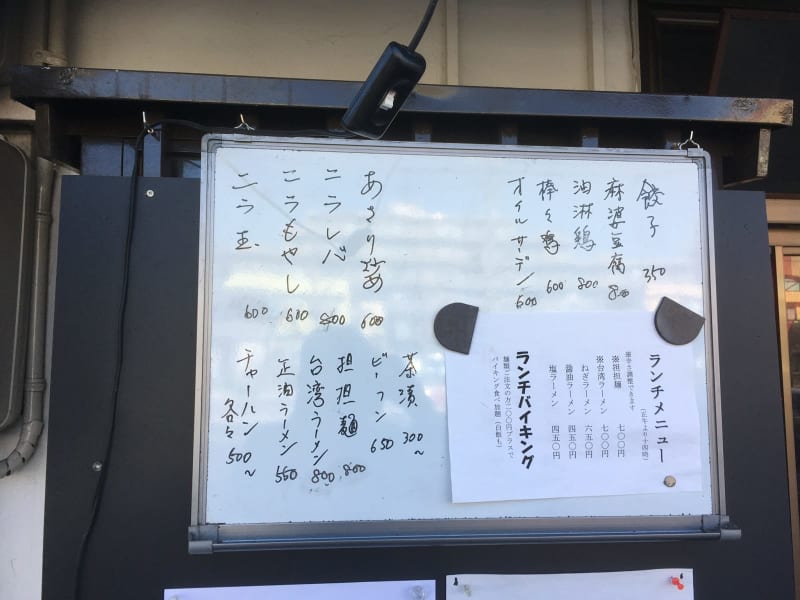 餃子 350
麻婆豆腐 800
油淋鶏 800
棒々鶏 600
オイルサーデン 600
あさり炒め 600
ニラレバ 800
ニラもやし 600
ニラ玉 600
茶漬 300〜
ビーフン 650
担担麺 800
台湾ラーメン 800
正油ラーメン 550
チャーハン 各々 500〜
ランチメニュー
(正午より十四時)
※辛さ調整できます
※担担麺 七〇〇円
※台湾ラーメン 七〇〇円
ねぎラーメン 六五〇円
醤油ラーメン 四五〇円
塩ラーメン 四五〇円
ランチバイキング
麺類ご注文の方二〇〇円プラスで
バイキング食べ放題(白飯も)